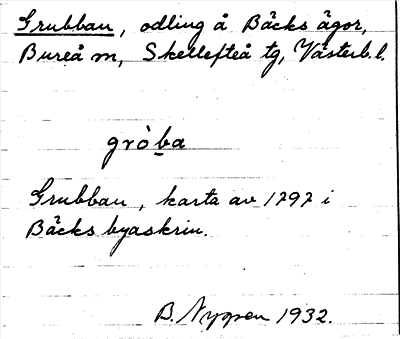 Grubban, odling å Bäcks ägor,
Bureå m, Skellefteå tg, Västerb. l.
gròba
Grubban, karta av 1797 i
Bäcks byaskrin.
B. Nygren 1932.